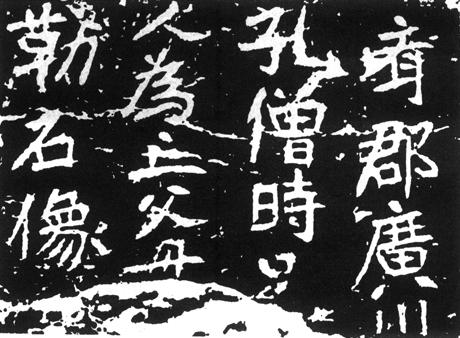 郡廣川
孔僧時
人為亡父母
勒石像